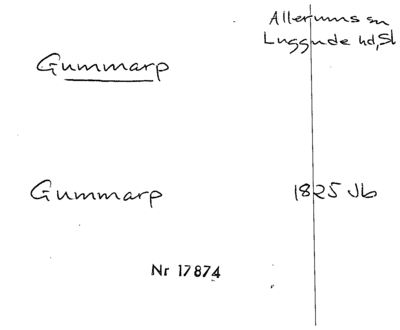 Allerums sn
Luggude hd, Sk
Gummarp
Gummarp 1825 Jb
Nr 17874